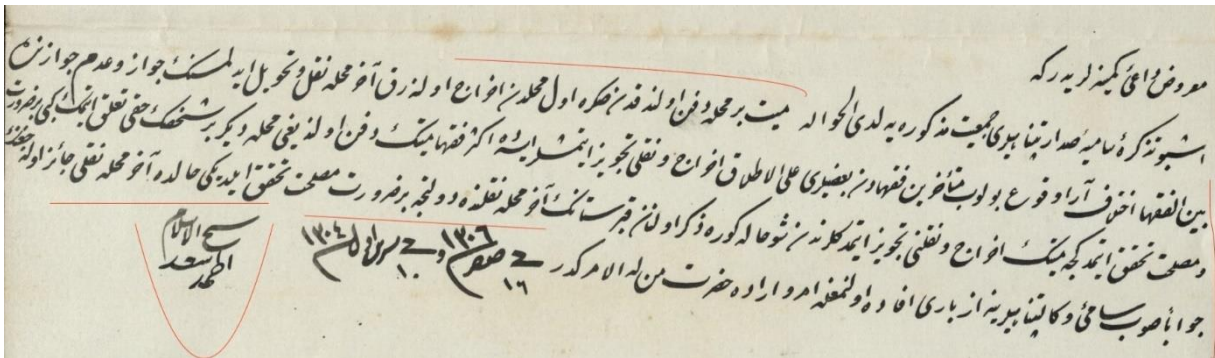 معروض داعئ كمينه لريدركه
اشبو تذكرۀ ساميۀ صدارتپناهيلرى جمعيت مذكوره يه لدى الحواله ميت بر محله دفن اولندقدن صكره اول محلدن اخراج اوله رق آخر محله نقل و تحويل ايدلمسنك جواز و عدم جوازنده
بين الفقها اختلاف آرا وقوع بولوب متأخرين فقهادن بعضيلرى على الاطلاق اخراج و نقلى تجويز ايتمشلر ايسه ده اكثر فقها ميتك دفن اولنديغى محله ديكر بر شخصك حقى تعلق ايتمك كبى بر ضرورت
و مصلحت تحقق ايتمدكجه ميتك اخراج و نقلنى تجويز ايتمدكلرندن شو حاله كوره ذكر اولنان قبرستانك آخر محله نقلنده دولتجه بر ضرورت و مصلحت تحقق ايلديكى حالده آخر محله نقلى جائز اوله جغنك
جواباً صوب سامئ وكالتپناهيلرينه ازبارى افاده اولنمغله امر و اراده حضرت من له الامركدر
فى ١٦ صفر ١٣٠٦ و فى ١٠ تشرين اول ١٣٠٤
شيخ الاسلام
احمد اسعد